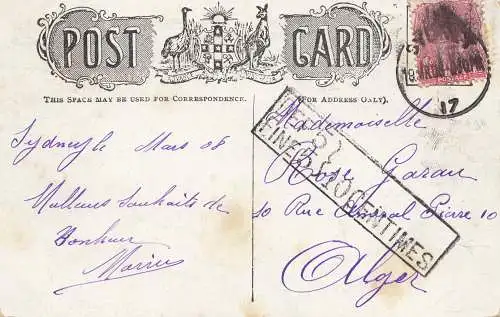 POST CARD
THIS SPACE MAY BE USED FOR CORRESPONDENCE.
(FOR ADDRESS ONLY).
17
Sydney le Mars 08
Meilleurs souhaits de
Bonheur
Marius
Mademoiselle
Rose Garau
10 Rue Amiral Pierre 10
Alger
10 CENTIMES